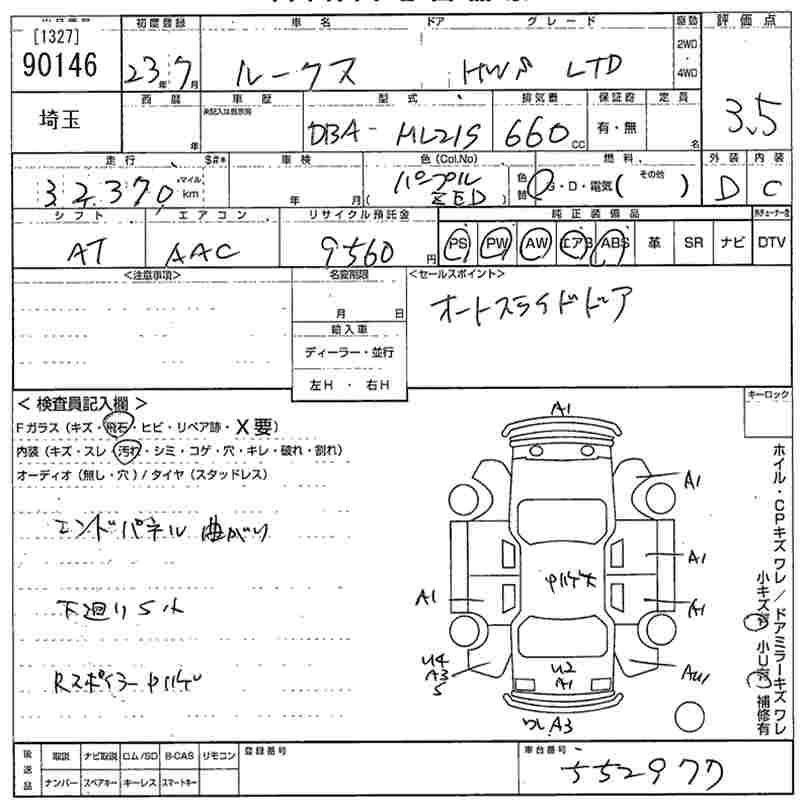 [1327]
90146
初度登録
車名
ドア
グレード
駆動
評価点
23年7月
ルークス
HWS LTD
2WD
・
4WD
3.5
埼玉
西暦
車歴
型式
排気量
保証書
定員
未記入は自家用
年
DBA-ML21S
660CC
有・無
名
走行
$#*
車検
色(Col.No)
燃料
外装
内装
32,370
マイル
km
年
月
(パープル
ZED)
色替
G・D・電気(その他)
D
C
シフト
エアコン
リサイクル預託金
純正装備品
AT
AAC
9560円
PS
PW
AW
エアB
ABS
革
SR
ナビ
DTV
<注意事項>
名変期限
<セールスポイント>
月
日
オートスライドドア
輸入車
ディーラー・並行
左H・右H
<検査員記入欄>
キーロック
Fガラス(キズ・飛石・ヒビ・リペア跡・X要)
内装(キズ・スレ・汚れ・シミ・コゲ・穴・キレ・破れ・割れ)
オーディオ(無し・穴)/タイヤ(スタッドレス)
エンドパネル 曲がり
下廻りSh
Rスポイラーヤハゲ
A1
A1
A1
A1
A1
ヤハゲ大
U4
A3
S
U2
A1
AU1
ワレA3
ホイル・CPキズワレ/ドアミラーキズワレ
小キズ有 小U有 補修有
後送品
取説
ナビ取説
ロム/SD
B-CAS
リモコン
ナンバー
スペアキー
キーレス
スマートキー
登録番号
車台番号
552977